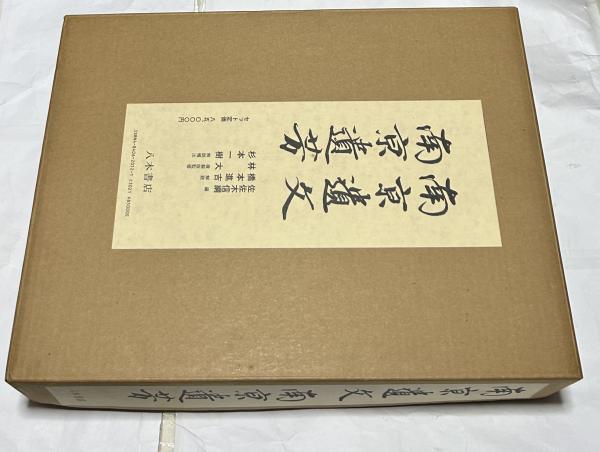 南京遺文
南京遺芳
佐佐木信綱 編
橋本進吉 解説
林 大
杉本一樹
セット定価 八五,〇〇〇円
八木書店
南京遺文 南京遺芳